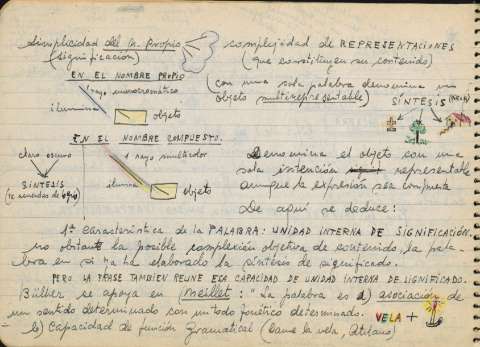 Simplicidad del n. Propio
(significación)
complejidad de REPRESENTACIONES
(que constituyen su contenido)
EN EL NOMBRE PROPIO
rayo monocromático
ilumina
objeto
(con una sola palabra denomina un
objeto multirrepresentable)
SÍNTESIS
EN EL NOMBRE COMPUESTO.
claro oscuro
SÍNTESIS
rayo simultador
ilumina
objeto
Denomina el objeto con una
sola intención representable
aunque la expresión sea compuesta
De aquí se deduce:
1ª Característica de la PALABRA: UNIDAD INTERNA DE SIGNIFICACIÓN.
no obstante la posible complexión objetiva de contenido, la pala-
bra en sí ha elaborado la síntesis de significado.
PERO LA FRASE TAMBIEN REUNE ESA CAPACIDAD DE UNIDAD INTERNA DE SIGNIFICADO.
Bülher se apoya en (Meillet): "La palabra es a) asociación de
un sentido determinado con un todo fonético determinado.
b) Capacidad de función Gramatical (Dame la vela,
VELA +